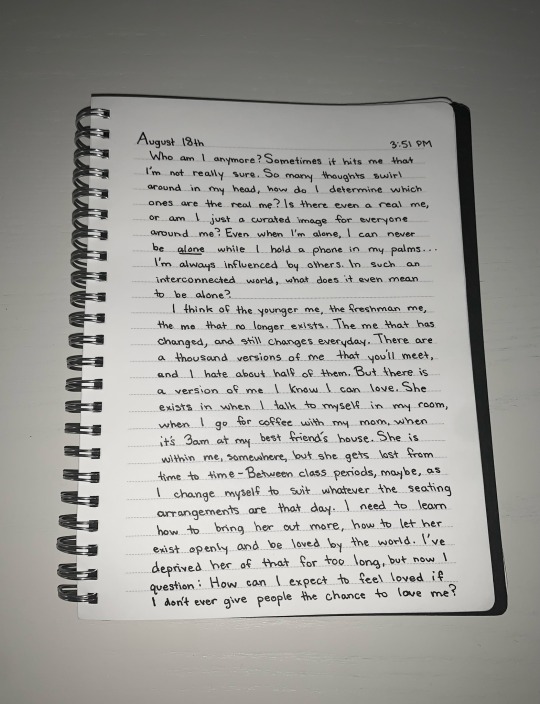 August 18th 3:51 PM
Who am I anymore? Sometimes it hits me that
I'm not really sure. So many thoughts swirl
around in my head, how do I determine which
ones are the real me? Is there even a real me,
or am I just a curated image for everyone
around me? Even when I'm alone, I can never
be alone while I hold a phone in my palms...
I'm always influenced by others. In such an
interconnected world, what does it even mean
to be alone?
I think of the younger me, the freshman me,
the me that no longer exists. The me that has
changed, and still changes everyday. There are
a thousand versions of me that you'll meet,
and I hate about half of them. But there is
a version of me I know I can love. She
exists in when I talk to myself in my room,
when I go for coffee with my mom, when
it's 3am at my best friend's house. She is
within me, somewhere, but she gets lost from
time to time-Between class periods, maybe, as
I change myself to suit whatever the seating
arrangements are that day. I need to learn
how to bring her out more, how to let her
exist openly and be loved by the world. I've
deprived her of that for too long, but now I
question: How can I expect to feel loved if
I don't ever give people the chance to love me?